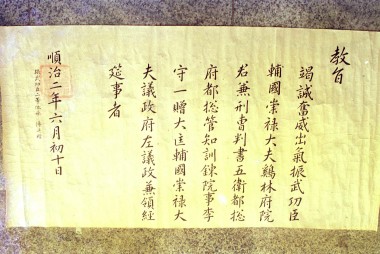 教旨
竭誠奮威出氣振武功臣
輔國崇禄大夫鷄林府院
君兼刑曺判書五衛都摠
府都摠管知訓鍊院事李
守一贈大匡輔國崇禄大
夫議政府左議政兼領經
筵事者
順治二年六月初十日